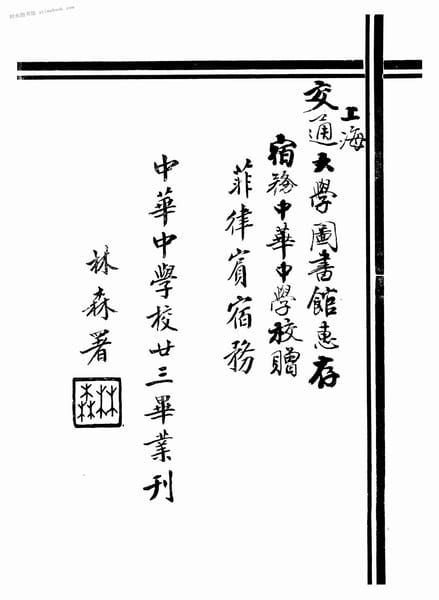 上海
交通大學圖書館惠存
宿務中華中學校贈
菲律賓宿務
中華中學校廿三畢業刊
林森署
林森